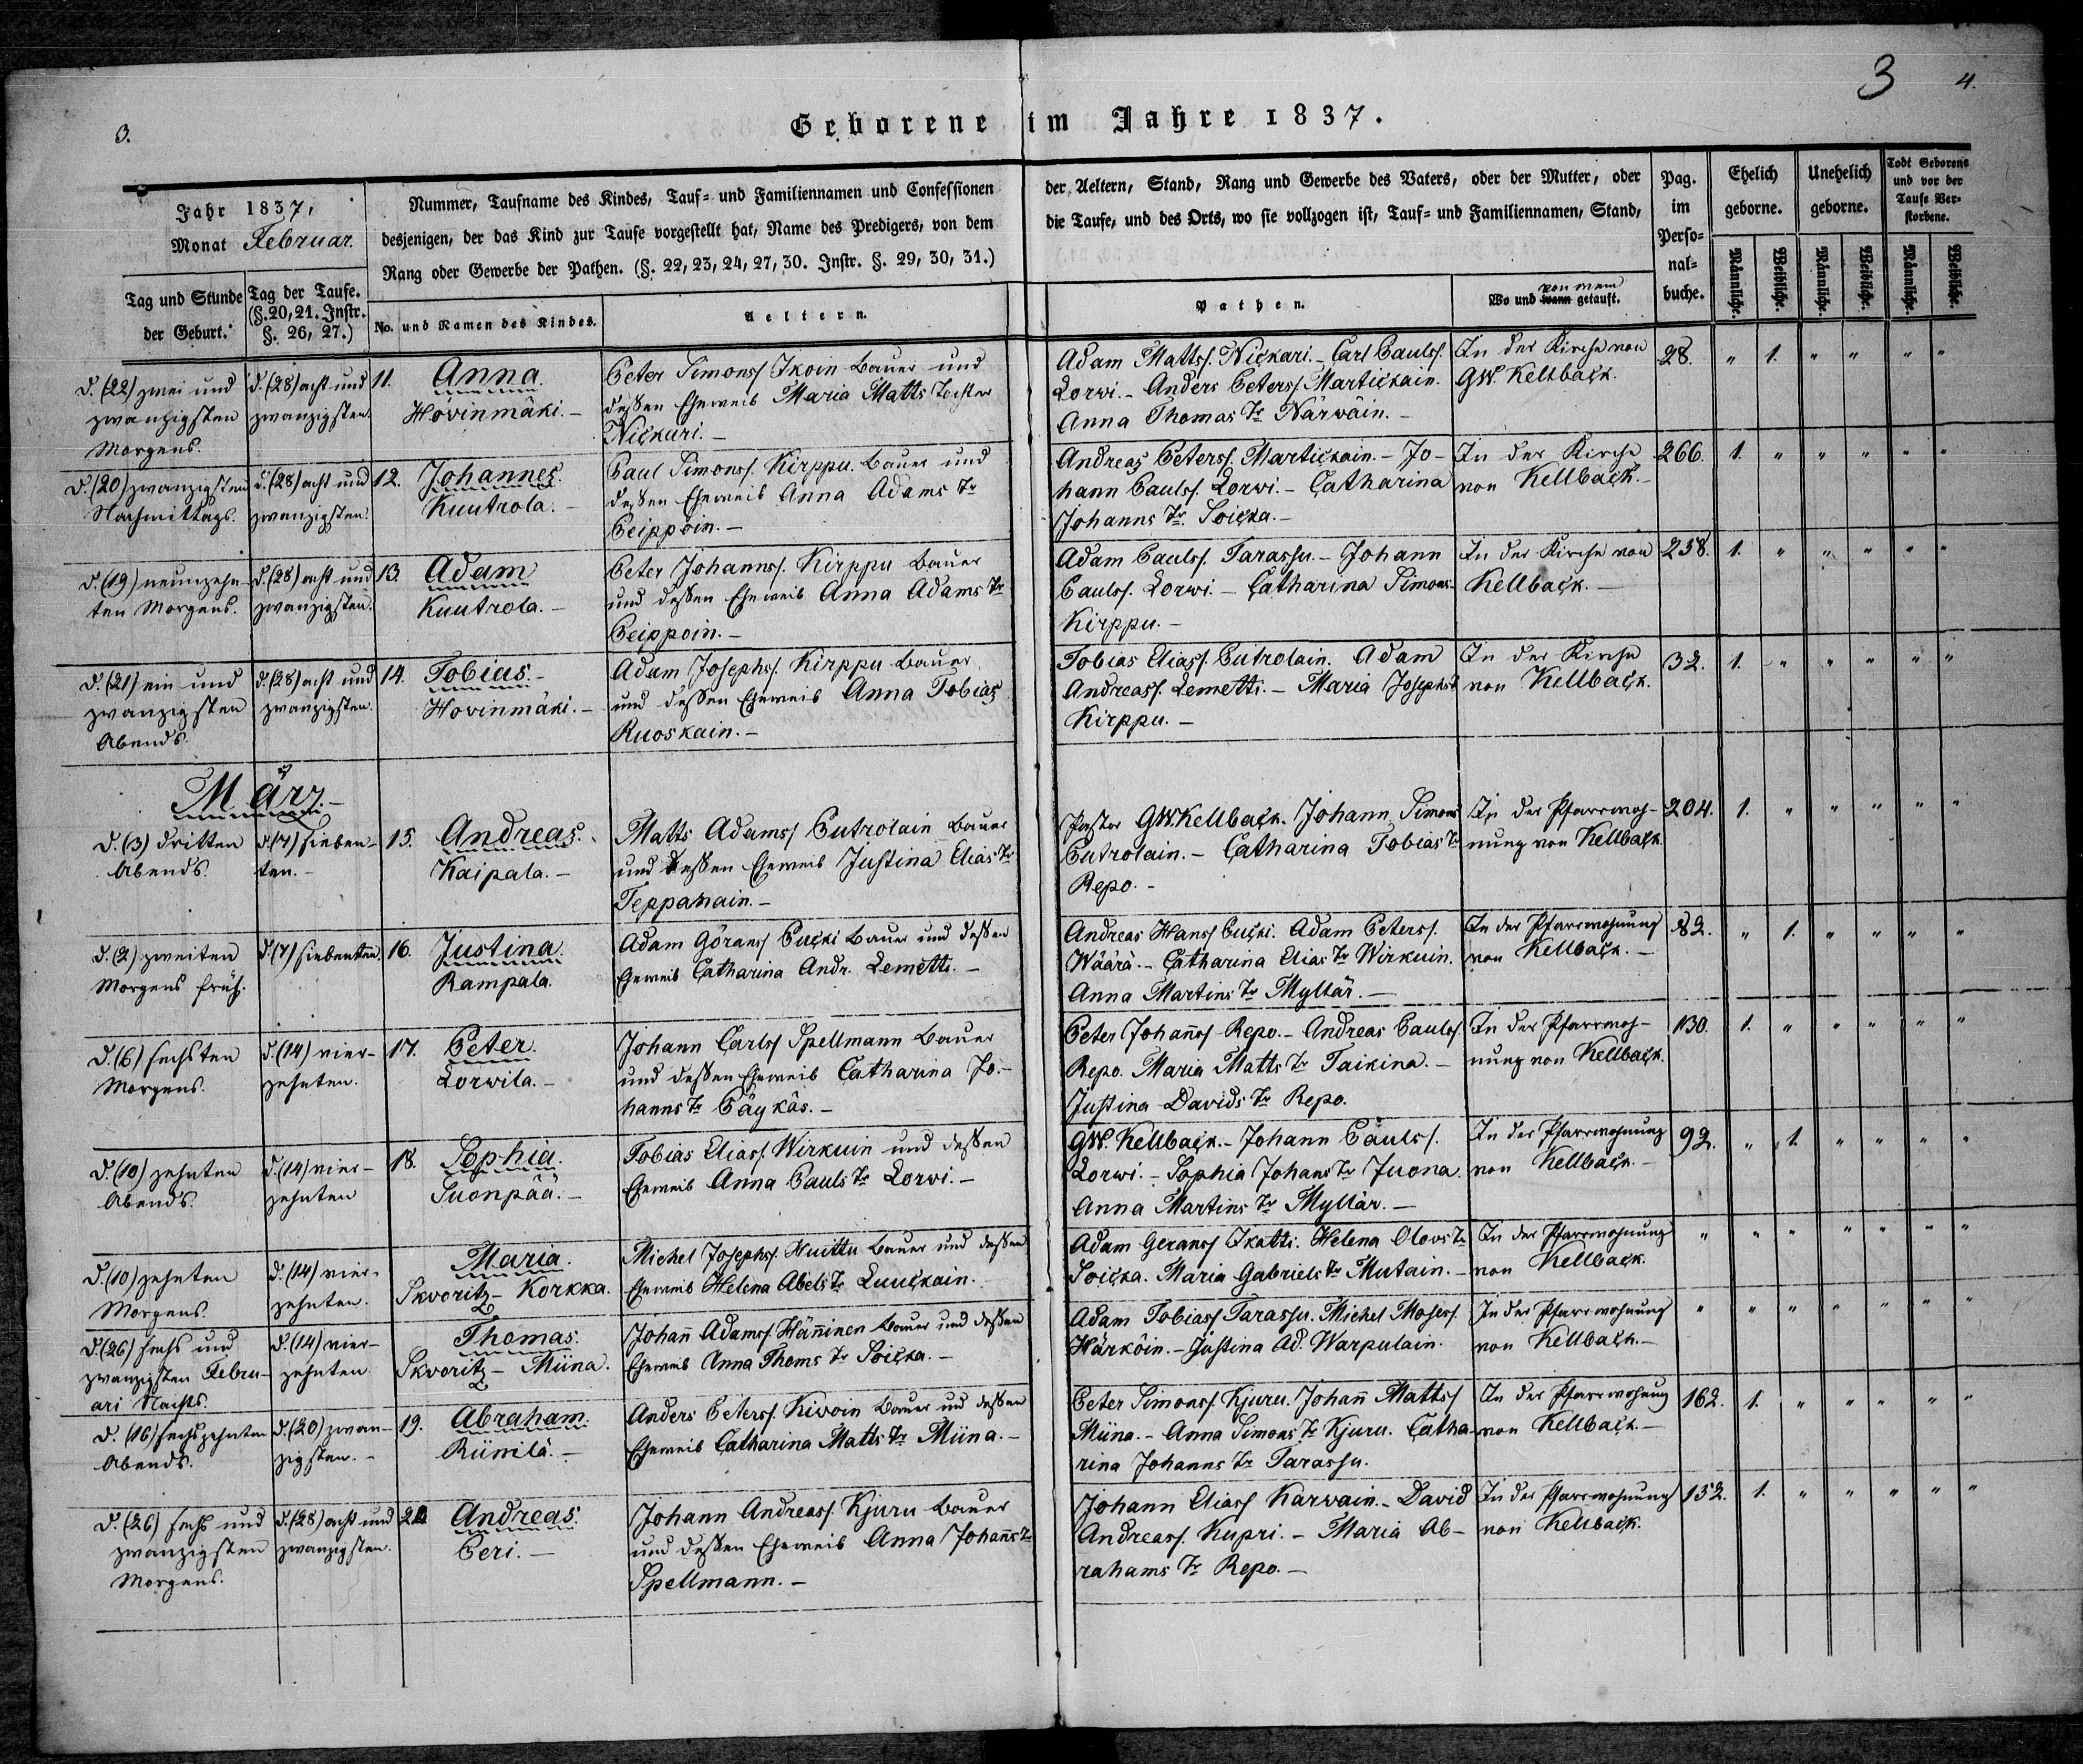 3
4.
3.
Geborene im Jahre 1837.
Jahr 1837,
Monat Februar.
Tag und Stunde
der Geburt.
Tag der Taufe.
(§. 20, 21. Instr.
§. 26, 27.)
Nummer, Taufname des Kindes, Tauf- und Familiennamen und Confessionen
desjenigen, der das Kind zur Taufe vorgestellt hat, Name des Predigers, von dem
Rang oder Gewerbe der Pathen. (§. 22, 23, 24, 27, 30. Instr. §. 29, 30, 31.)
No. und Namen des Kindes.
Aeltern.
der Aeltern, Stand, Rang und Gewerbe des Vaters, oder der Mutter, oder
die Taufe, und des Orts, wo sie vollzogen ist, Tauf- und Familiennamen, Stand,
Pathen.
von wem
Wo und wann getauft.
Pag.
im
Perso-
nal-
buche.
Ehelich
geborne.
Unehelich
geborne.
Todt Geborene
und vor der
Taufe Ver-
storbene.
Männliche.
Weibliche.
Männliche.
Weibliche.
Männliche.
Weibliche.
d. (22) zwei und
zwanzigsten
Morgens.
d. (28) acht und
zwanzigsten.
11. Anna.
Hovinmäki. -
Peter Simonss Ikoin Bauer und
deßen Eheweib Maria Matts Tochter
Nickari. -
Adam Mattss. Nickari. - Carl Paulss.
Lorwi. - Anders Peterss Martickain.
Anna Thomas Tr Närwäin. -
In der Kirche von
GW. Kellback.
28. " 1. " " " "
d. (20) zwanzigsten
Nachmittags.
d. (28) acht und
zwanzigsten.
12. Johannes.
Kuutrola. -
Paul Simonss. Kirppu Bauer und
deßen Eheweib Anna Adams Tr
Peippoin. -
Andreas Peterss. Martickain. - Jo-
hann Paulss. Lorwi. - Catharina
Johanns Tr. Soicka. -
In der Kirche
von Kellback. -
266. 1. " " " " "
d. (19) neunzehn-
ten Morgens.
d. (28) acht und
zwanzigsten.
13. Adam
Kuutrola. -
Peter Johannss. Kirppu Bauer
und deßen Eheweib Anna Adams Tr
Peippoin. -
Adam Paulss. Tarassu. - Johann
Paulss. Lorwi. - Catharina Simons
Kirppu. -
In der Kirche von
Kellback. -
258. 1. " " " " "
d. (21) ein und
zwanzigsten
Abends.
d. (28) acht und
zwanzigsten.
14. Tobias. -
Hovinmäki. -
Adam Josephss. Kirppu Bauer
und deßen Eheweib Anna Tobias
Ruoskain. -
Tobias Eliass. Putrolain. Adam
Andreass. Lemetti. - Maria Josephs
Kirppu. -
In der Kirche
von Kellback.
32. 1. " " " " "
März. -
d. (3) dritten
Abends.
d. (7) sieben-
ten. -
15. Andreas.
Kaipala. -
Matts Adamss Putrolain Bauer
und deßen Eheweib Justina Elias Tr
Teppanain. -
Pastor GW. Kellback. Johann Simons
Putrolain. - Catharina Tobias Tr
Repo. -
In der Pfarrwoh-
nung von Kellback.
204. 1. " " " " "
d. (2) zweiten
Morgens früh.
d. (7) siebenten.
16. Justina.
Rampala.
Adam Göranss Pucki Bauer und deßen
Eheweib Catharina Andr. Lemetti. -
Andreas Hanss Pucki. Adam Peterss.
Wäärä. - Catharina Elias Tr Wirkuin.
Anna Martins Tr Myllär. -
In der Pfarrwohnung
von Kellback. -
82. " 1. " " " "
d. (6) sechsten
Morgens.
d. (14) vier-
zehnten.
17. Peter.
Lorwila. -
Johann Carlss Spellmann Bauer
und deßen Eheweib Catharina Jo-
hanns Tr Päykäs. -
Peter Johanns Repo. - Andreas Paulss.
Repo. Maria Matts Tr Taikina. -
Justina Davids Tr Repo.
In der Pfarrwoh-
nung von Kellback.
130. 1. " " " " "
d. (10) zehnten
Abends.
d. (14) vier-
zehnten
18. Sophia.
Suonpää. -
Tobias Eliass. Wirkuin und deßen
Eheweib Anna Pauls Tr Lorwi. -
GW. Kellback. - Johann Paulss.
Lorwi. - Sophia Johans Tr Juona.
Anna Martins Tr Myllär. -
In der Pfarrwohnung
von Kellback. -
92. " 1. " " " "
d. (10) zehnten
Morgens.
d. (14) vier-
zehnten.
Maria.
Skvoritz - Korkka.
Michel Josephss. Huittu Bauer und deßen
Eheweib Helena Abels Tr Luuckain.
Adam Geranss Ikatti. Helena Olovs Tr
Soicka. Maria Gabriels Tr Mutain. -
In der Pfarrwohnung
von Kellback.
" " " " " " "
d. (26) sechs und
zwanzigsten Febru-
ari Nachts.
d. (14) vier-
zehnten
Thomas.
Skvoritz - Miina.
Johan̄ Adamss. Hän̄inen Bauer und deßen
Eheweib Anna Thoms Tr Soicka. -
Adam Tobiass Tarassu. Michel Mosess.
Härköin. - Justina Ad. Warpulain.
In der Pfarrwohnung
von Kellback. -
" " " " " " "
d. (16) sechszehnten
Abends.
d. (20) zwan-
zigsten. -
19. Abraham.
Riimilä. -
Anders Peterss. Kiwoin Bauer und deßen
Eheweib Catharina Matts Tr Miina. -
Peter Simonss. Kjuru. Johan̄ Mattss
Miina. - Anna Simons Tr Kjuru. Catha-
rina Johanns Tr Tarassu.
In der Pfarrwohnung
von Kellback. -
162. 1. " " " " "
d. (26) sechs und
zwanzigsten
Morgens.
d. (28) acht und
zwanzigsten.
20. Andreas.
Peri. -
Johann Andreass. Kjuru Bauer
und deßen Eheweib Anna Johan̄s Tr
Spellmann. -
Johann Eliass Karwain. - David
Andreass. Kupri. - Maria Ab-
rahams Tr Repo. -
In der Pfarrwohnung
von Kellback.
132. 1. " " " " "